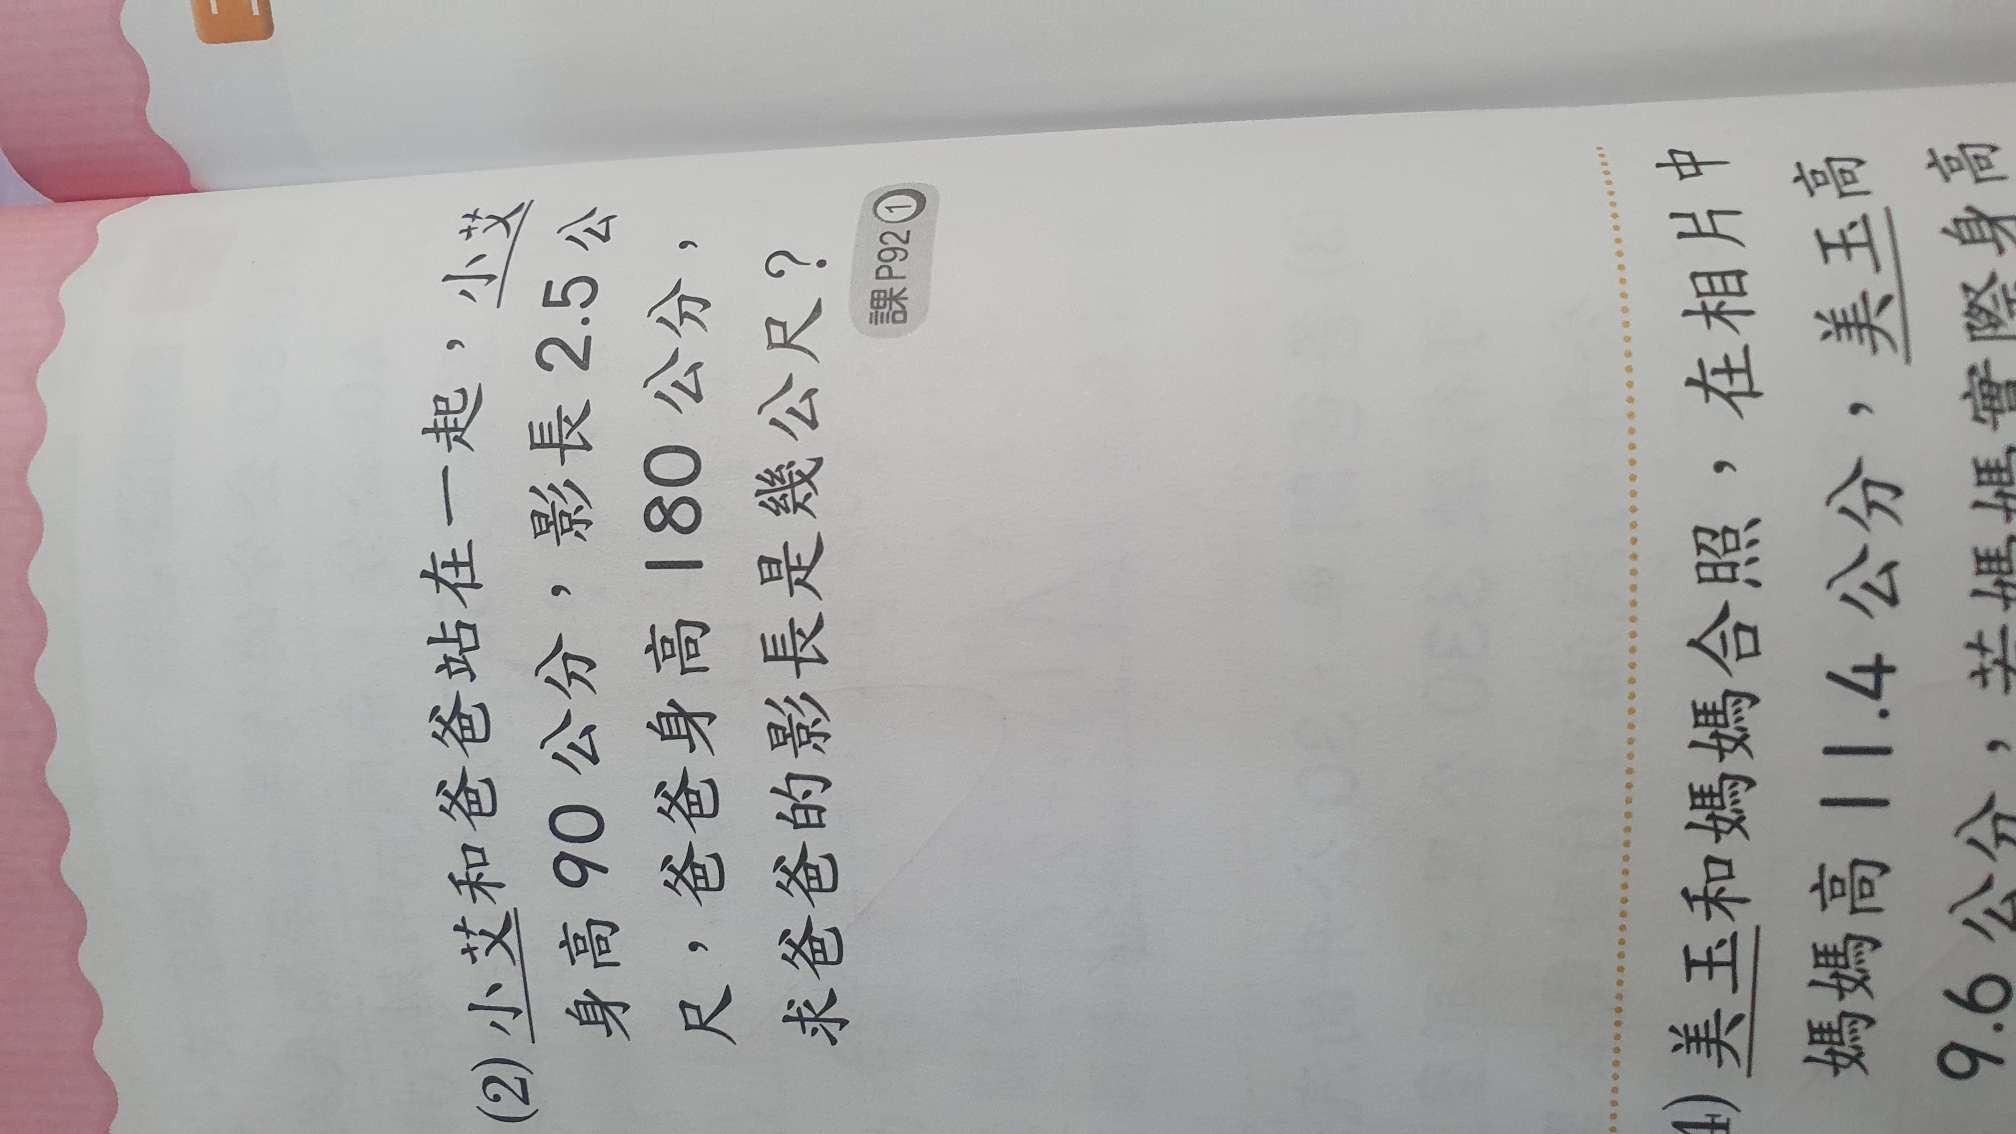 (2) 小艾和爸爸站在一起，小艾
身高 90 公分，影長 2.5 公
尺，爸爸身高 180 公分，
求爸爸的影長是幾公尺？
課 P92 ①
美玉和媽媽合照，在相片中
媽媽高 11.4 公分，美玉高
9.6 公分，若媽媽實際身高